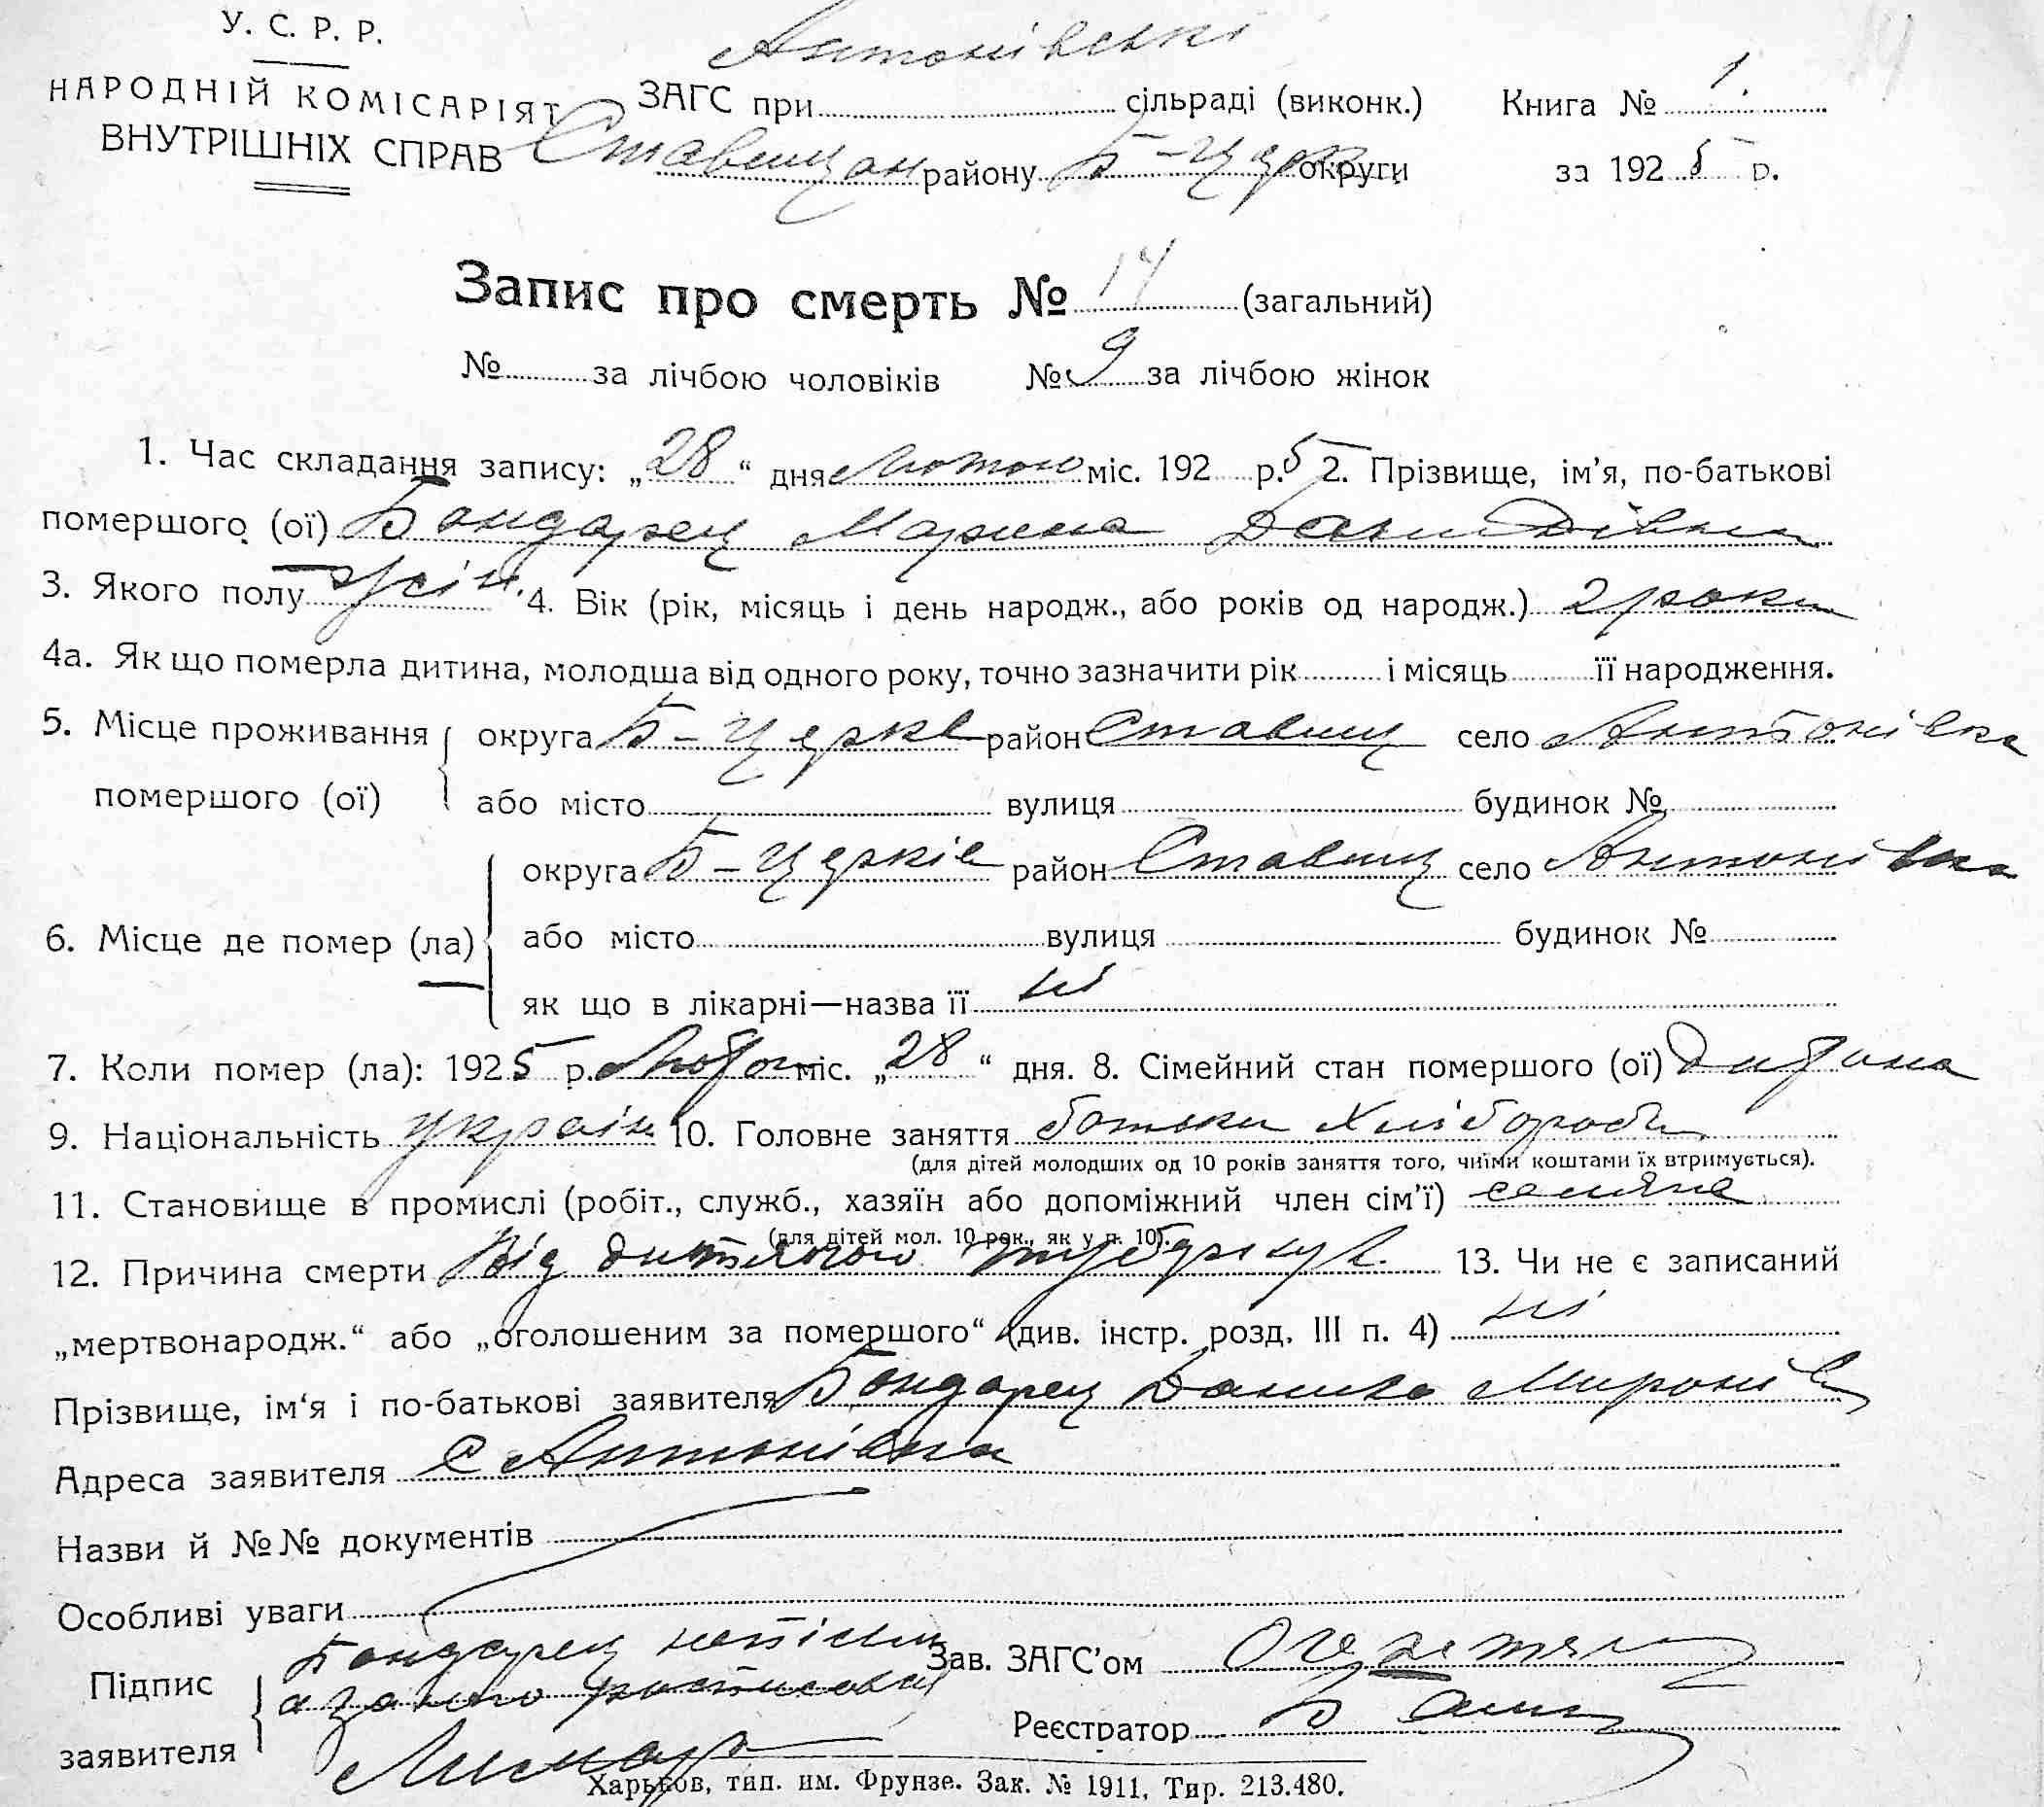 У. С. Р. Р.
НАРОДНІЙ КОМІСАРІЯТ
ВНУТРІШНІХ СПРАВ
ЗАГС при Антонівські сільраді (виконк.) Книга № 1.
Ставищан району Б-Церк округи за 1925 р.
Запис про смерть № 14 (загальний)
№ за лічбою чоловіків № 9 за лічбою жінок
1. Час складання запису: „28“ дня Лютого міс. 192 р. 5 2. Прізвище, ім'я, по-батькові
помершого (ої) Бондарец Марина Данилівна
3. Якого полу жін. 4. Вік (рік, місяць і день народж., або років од народж.) 2 роки
4а. Як що померла дитина, молодша від одного року, точно зазначити рік і місяць її народження.
5. Місце проживання помершого (ої) округа Б-Церкв район Ставищ село Антонівка
або місто вулиця будинок №
6. Місце де помер (ла) округа Б-Церків район Ставищ село Антонівка
або місто вулиця будинок №
як що в лікарні—назва її ні
7. Коли помер (ла): 1925 р. Лютого міс. „28“ дня. 8. Сімейний стан помершого (ої) дитина
9. Національність україн 10. Головне заняття батьки Хлібороби
(для дітей молодших од 10 років заняття того, чиїми коштами їх втримується).
11. Становище в промислі (робіт., служб., хазяїн або допоміжний член сім'ї) селяне
(для дітей мол. 10 рок., як у п. 10).
12. Причина смерти Від дитячого 13. Чи не є записаний
„мертвонародж.“ або „оголошеним за помершого“ (див. інстр. розд. III п. 4) ні
Прізвище, ім'я і по-батькові заявителя Бондарец Данило Миронів
Адреса заявителя с Антонівка
Назви й №№ документів
Особливі уваги
Підпис заявителя Бондарец
за його
Зав. ЗАГС'ом
Реєстратор
Харьков, тип. им. Фрунзе. Зак. № 1911, Тир. 213.480.